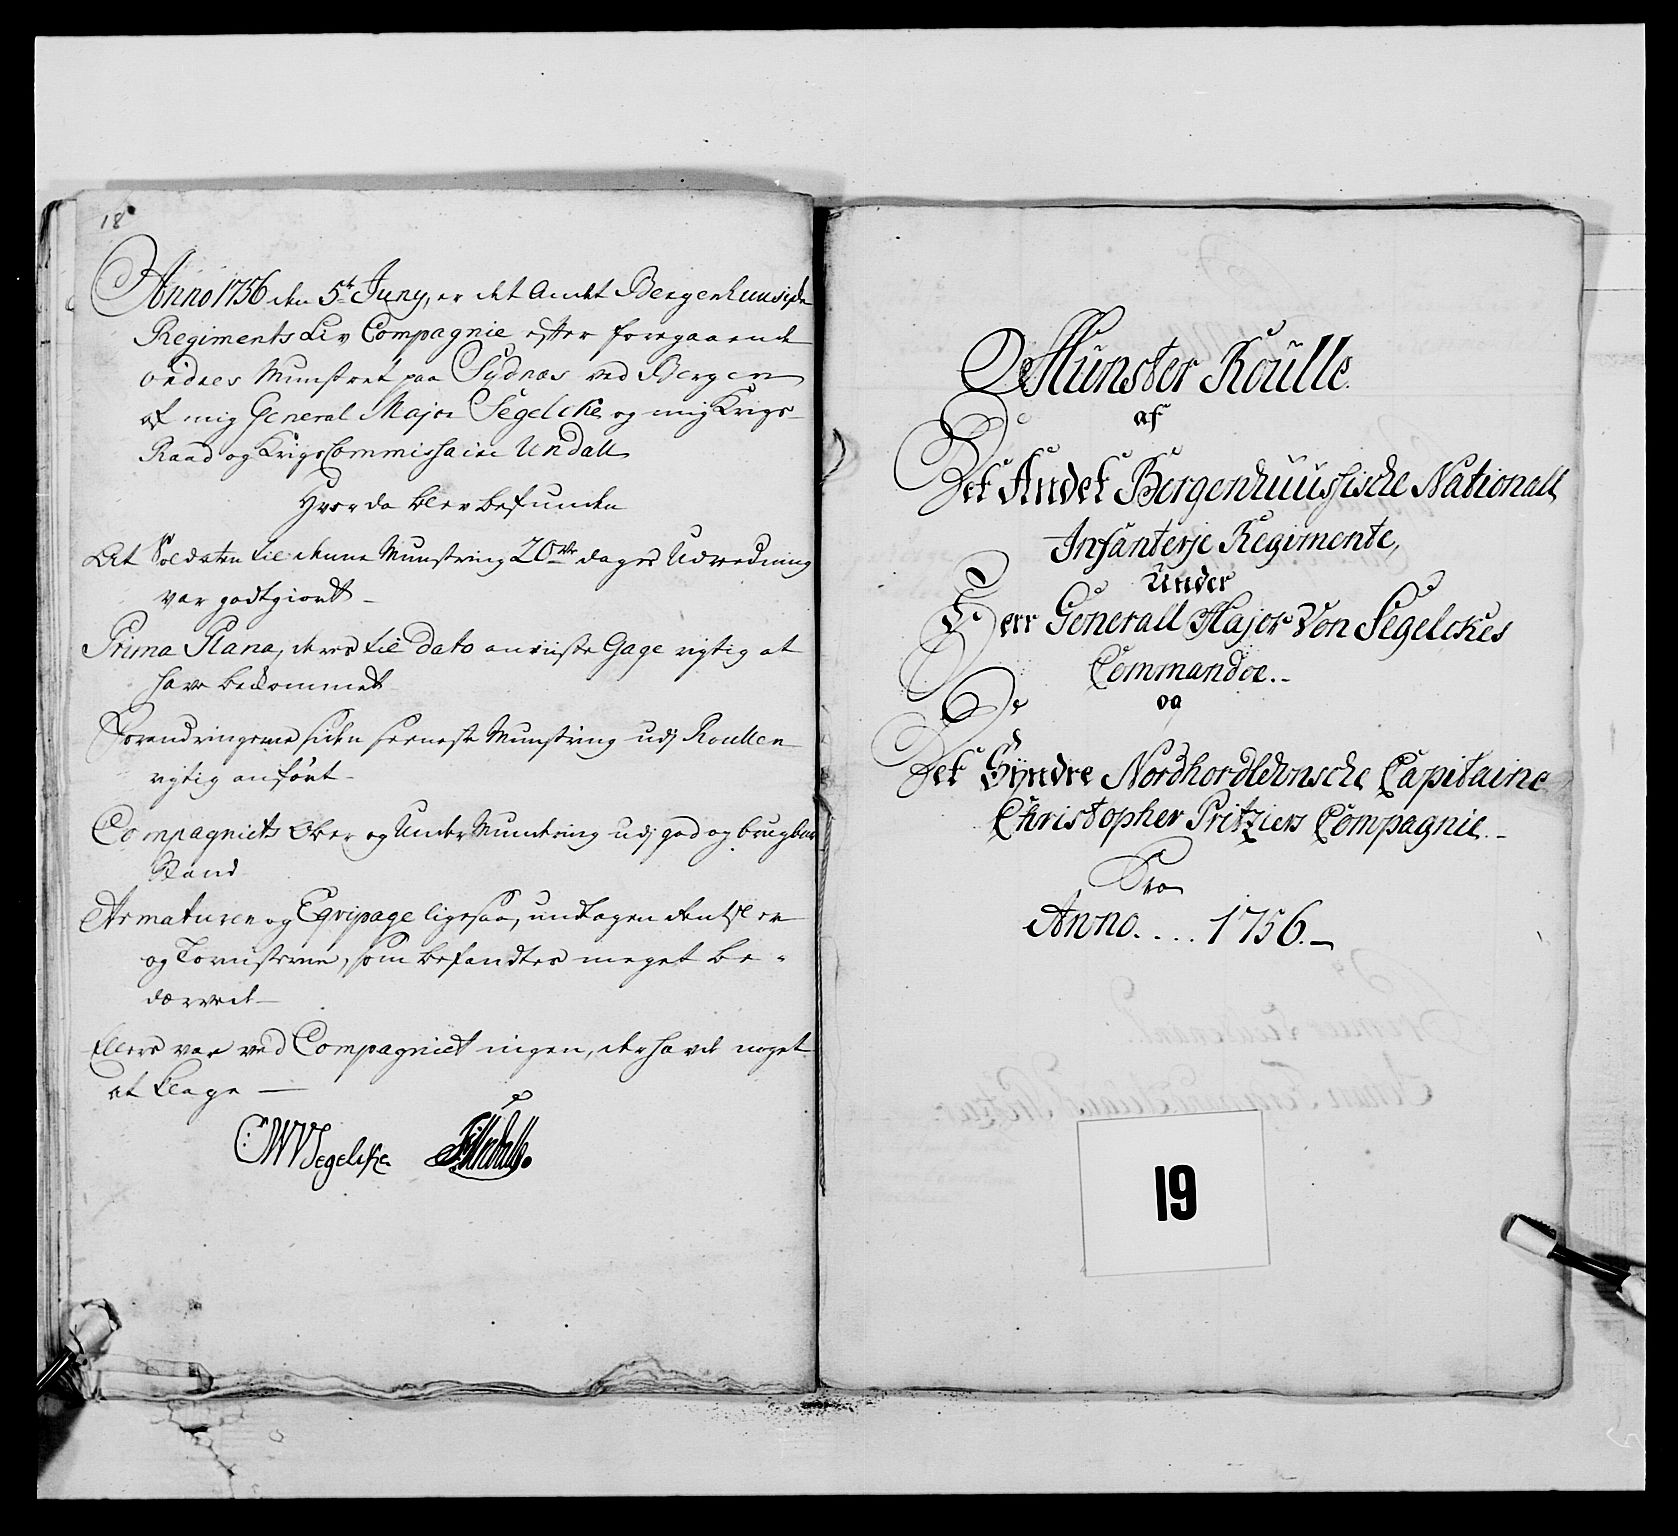 18
Anno 1756 den 5te Juny, er det Andet Bergenhuusiske
Regiments Liv Compagnie efter foregaaende
ordres Munstret paa Sydnæs ved Bergen
af mig General Major Segelcke og mig Krigs-
Raad og Krigs Commissaire Undall
Hvor da blev befunden
At Soldaten til denne Munstring 20ve dages Udredning
var godtgiort
Prima Plana, deres til Dato anviiste Gage rigtig at
have bekommet
Forandringerne siden seeneste Munstring udj Roullen
rigtig anført
Compagniets Over og Under Mundering udj god og brugbar
Stand
Armaturen og Eqvipage ligesaa, undtagen
og Tornistrene, som befandtes meget be-
dærvet
Ellers var ved Compagniet ingen, der havde noget
at klage
CWVSegelcke Undall.
Munster Roulle.
af
Det Andet Bergenhuusische Nationall
Infanterje Regimente,
Under
Herr Generall Major Von Segelckes
Commandoe.
og
De
Det Syndre Nordhordlehnsche Capitaine
Christopher Pritziers Compagnie.
Pro
Anno.... 1756.
19